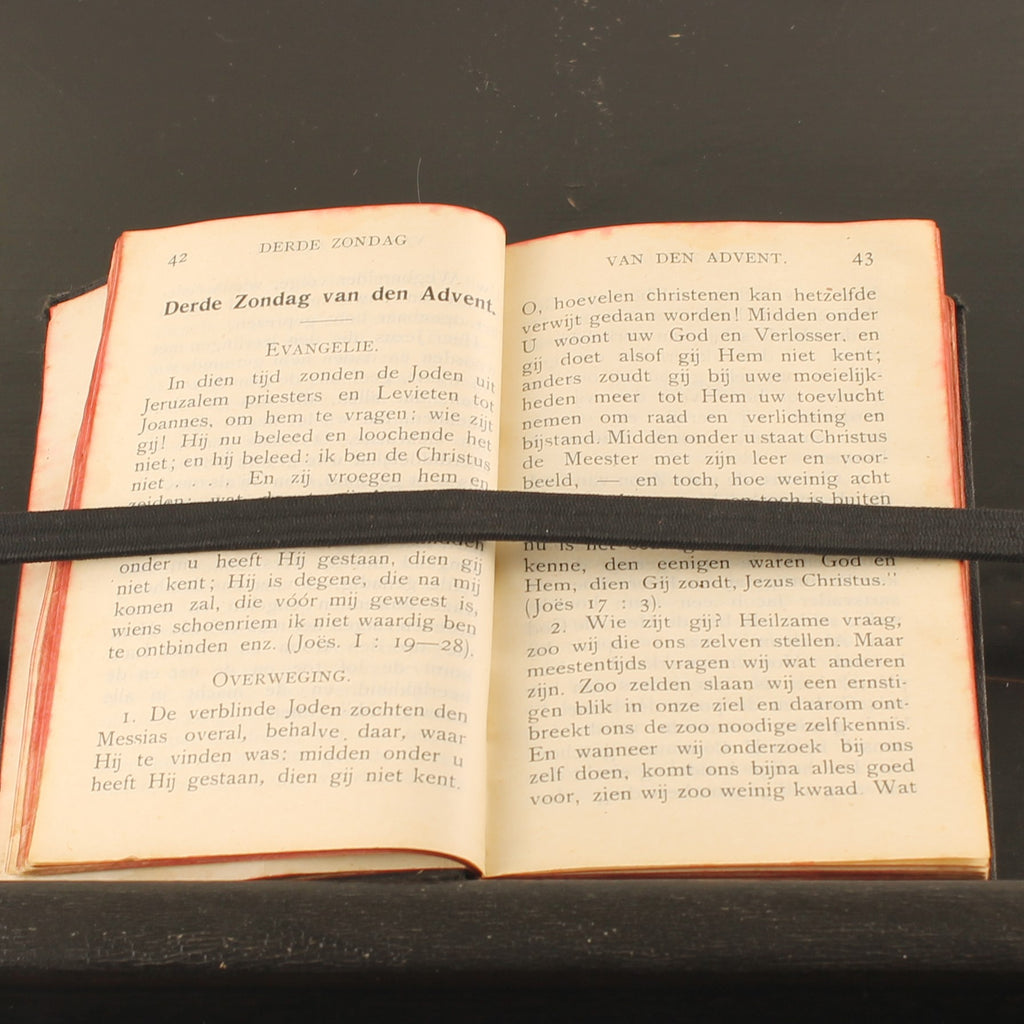 42
DERDE ZONDAG
Derde Zondag van den Advent.
EVANGELIE.
In dien tijd zonden de Joden uit
Jeruzalem priesters en Levieten tot
Joannes, om hem te vragen: wie zijt
gij! Hij nu beleed en loochende het
niet; en hij beleed: ik ben de Christus
niet . . . . En zij vroegen hem en
onder u heeft Hij gestaan, dien gij
niet kent; Hij is degene, die na mij
komen zal, die vóór mij geweest is,
wiens schoenriem ik niet waardig ben
te ontbinden enz. (Joës. I : 19—28).
OVERWEGING.
1. De verblinde Joden zochten den
Messias overal, behalve daar, waar
Hij te vinden was: midden onder u
heeft Hij gestaan, dien gij niet kent.
VAN DEN ADVENT.
43
O, hoevelen christenen kan hetzelfde
verwijt gedaan worden! Midden onder
U woont uw God en Verlosser, en
gij doet alsof gij Hem niet kent;
anders zoudt gij bij uwe moeielijk-
heden meer tot Hem uw toevlucht
nemen om raad en verlichting en
bijstand. Midden onder u staat Christus
de Meester met zijn leer en voor-
beeld, — en toch, hoe weinig acht
en toch is buiten
nu is het
kenne, den eenigen waren God en
Hem, dien Gij zondt, Jezus Christus."
(Joës 17 : 3).
2. Wie zijt gij? Heilzame vraag,
zoo wij die ons zelven stellen. Maar
meestentijds vragen wij wat anderen
zijn. Zoo zelden slaan wij een ernsti-
gen blik in onze ziel en daarom ont-
breekt ons de zoo noodige zelfkennis.
En wanneer wij onderzoek bij ons
zelf doen, komt ons bijna alles goed
voor, zien wij zoo weinig kwaad. Wat